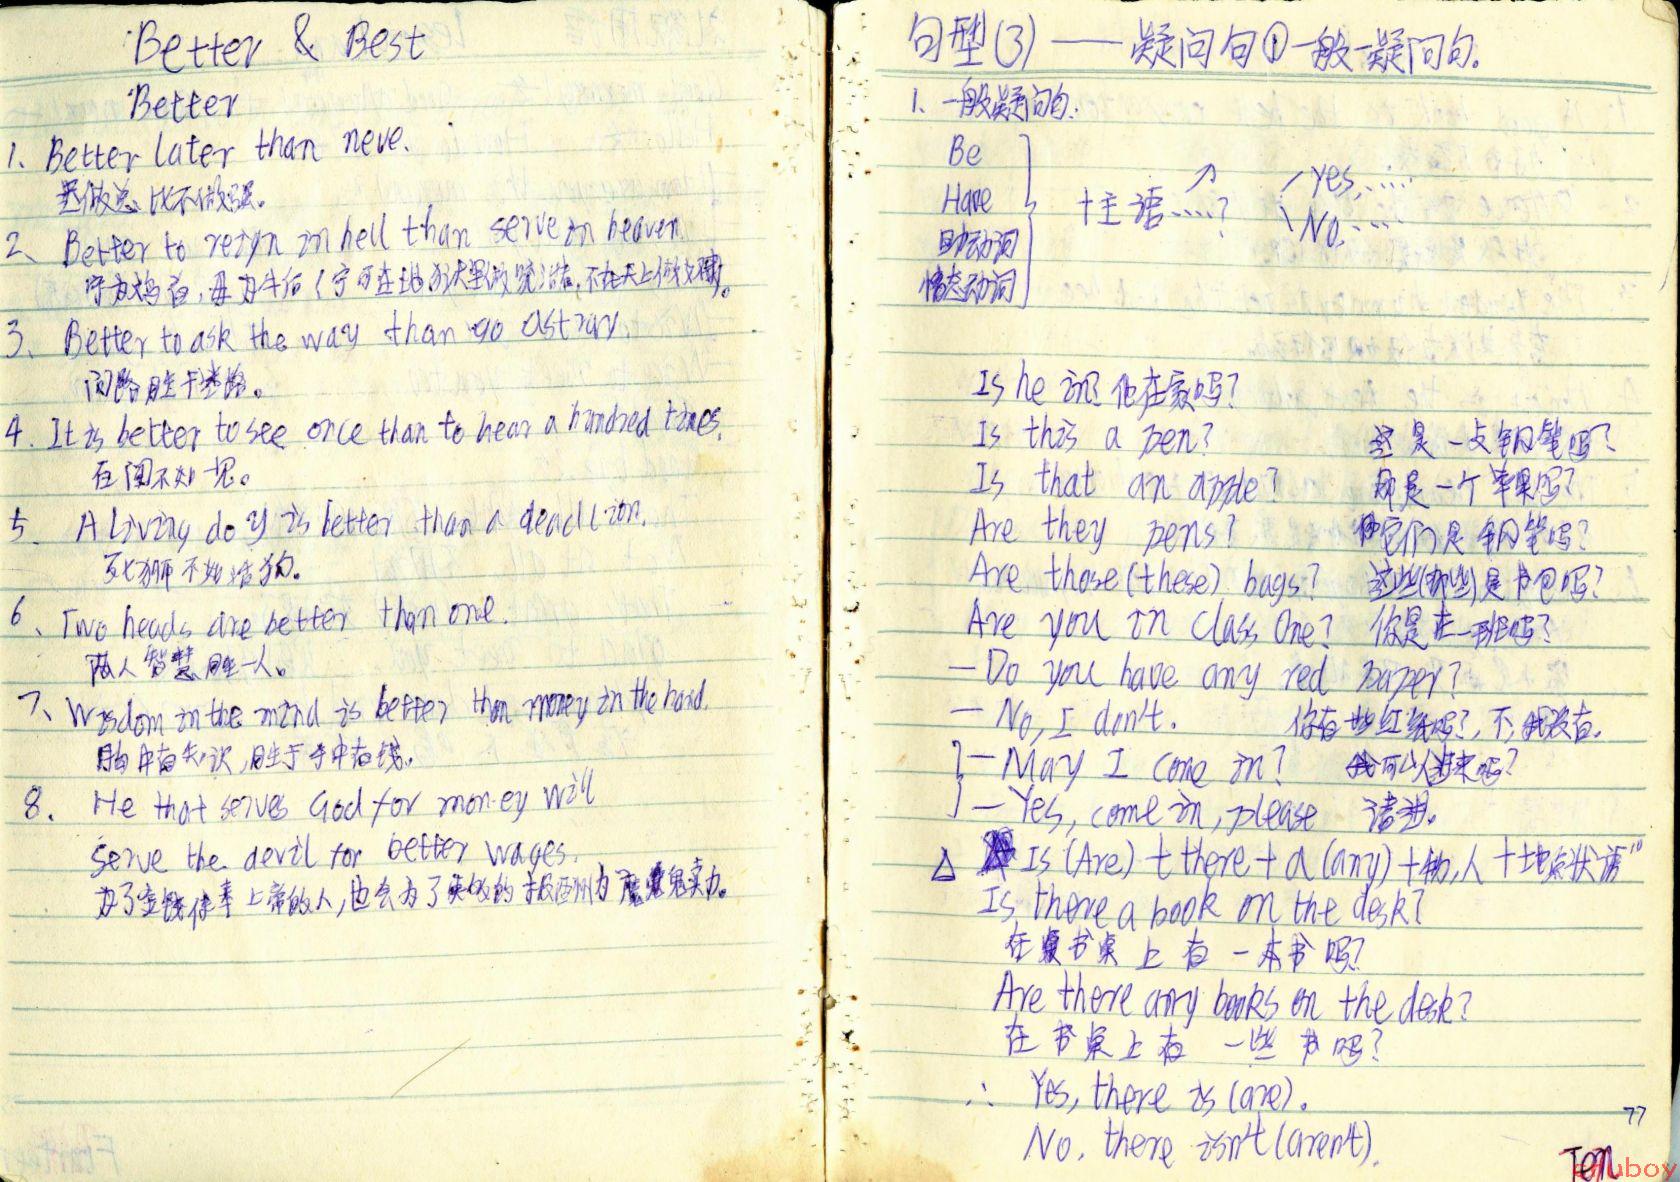 Better & Best
Better
1. Better later than neve.
做总比不做强。
2、Better to reign in hell than serve in heaven.
宁为鸡首,毋为牛后(宁可在地狱里做统治者,不在天上做
3、Better to ask the way than go astray.
问路胜于迷路。
4. It is better to see once than to hear a hundred times.
百闻不如一见。
5. A living dog is better than a dead lion.
死狮不如活狗。
6、Two heads are better than one.
两人智慧胜一人。
7、Wisdom in the mind is better than money in the hand.
胸中有知识,胜于手中有钱。
8. He that serves God for money will
serve the devil for better wages.
为了金钱侍奉上帝的人,也会为了更多的报酬为魔鬼卖力。
句型(3)——疑问句①一般疑问句.
1. 一般疑问句:
Be
Have
助动词
情态动词
+主语……?
Yes,……
No,……
Is he in? 他在家吗?
Is this a pen? 这是一支钢笔吗?
Is that an apple? 那是一个苹果吗?
Are they pens? 它们是钢笔吗?
Are those(these) bags? 这些(那些)是书包吗?
Are you in Class One? 你是在一班吗?
—Do you have any red paper?
—No, I don't. 你有些红纸吗?,不,我没有。
—May I come in? 我可以进来吗?
—Yes, come in, please 请进。
△ Is (Are) + there + a (any) + 物,人 + 地点状语
Is there a book on the desk?
在书桌上有一本书吗?
Are there any books on the desk?
在书桌上有一些书吗?
∴ Yes, there is (are).
No. there isn't (aren't).
77